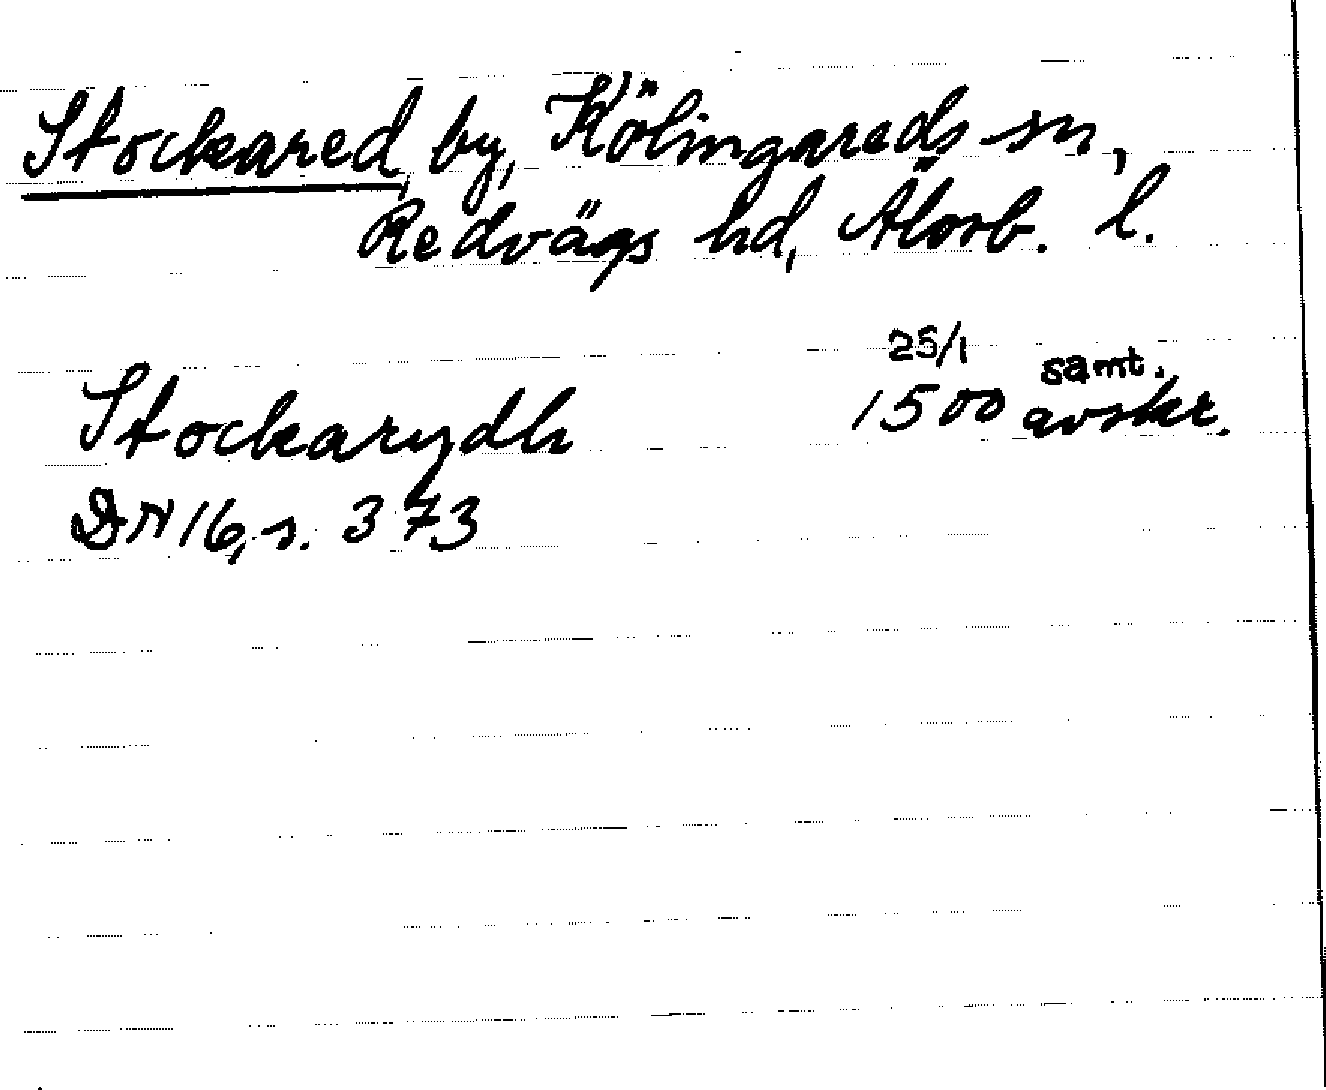 Stockared by, Kölingareds sn,
Redvägs hd, Älvsb. l.
25/1 samt.
Stockarydh 1500 avskr.
DN 16, s. 373